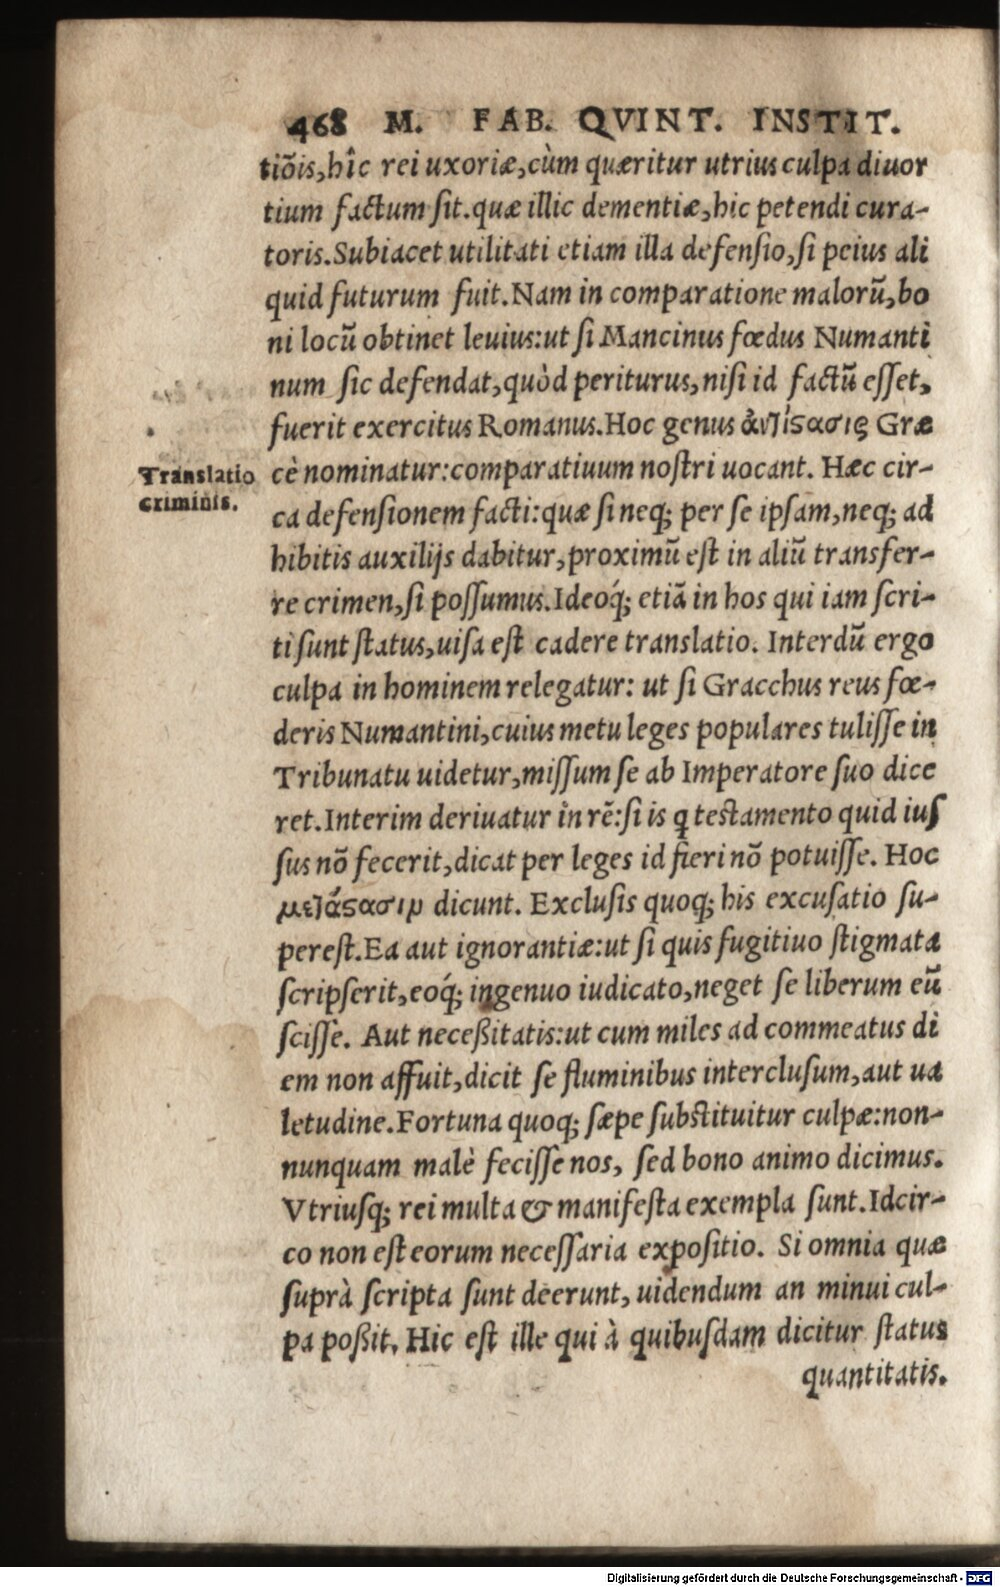 468 M. FAB. QVINT. INSTIT.
tiõis,hîc rei uxoriæ,cùm quæritur utrius culpa diuor
tium factum sit.quæ illic dementiæ,hic petendi cura-
toris.Subiacet utilitati etiam illa defensio,si peius ali
quid futurum fuit.Nam in comparatione malorũ,bo
ni locũ obtinet leuius:ut si Mancinus fœdus Numanti
num sic defendat,quòd periturus,nisi id factũ esset,
fuerit exercitus Romanus.Hoc genus ἀντίϛασις Græ
Translatio
criminis.
cè nominatur:comparatiuum nostri uocant. Hæc cir-
ca defensionem facti:quæ si neq; per se ipsam,neq; ad
hibitis auxilijs dabitur,proximũ est in aliũ transfer-
re crimen,si possumus.Ideoq́; etiã in hos qui iam scri-
ti sunt status,uisa est cadere translatio. Interdũ ergo
culpa in hominem relegatur: ut si Gracchus reus fœ-
deris Numantini,cuius metu leges populares tulisse in
Tribunatu uidetur,missum se ab Imperatore suo dice
ret.Interim deriuatur in rẽ:si is q̃ testamento quid ius
sus nõ fecerit,dicat per leges id fieri nõ potuisse. Hoc
μετάϛασιμ dicunt. Exclusis quoq; his excusatio su-
perest.Ea aut ignorantiæ:ut si quis fugitiuo stigmata
scripserit,eoq́; ingenuo iudicato,neget se liberum eũ
scisse. Aut neceßitatis:ut cum miles ad commeatus di
em non affuit,dicit se fluminibus interclusum,aut ua
letudine.Fortuna quoq; sæpe substituitur culpæ:non-
nunquam malè fecisse nos, sed bono animo dicimus.
Vtriusq; rei multa & manifesta exempla sunt.Idcir-
co non est eorum necessaria expositio. Si omnia quæ
suprà scripta sunt deerunt,uidendum an minui cul-
pa poßit. Hic est ille qui à quibusdam dicitur status
quantitatis.
Digitalisierung gefördert durch die Deutsche Forschungsgemeinschaft - DFG